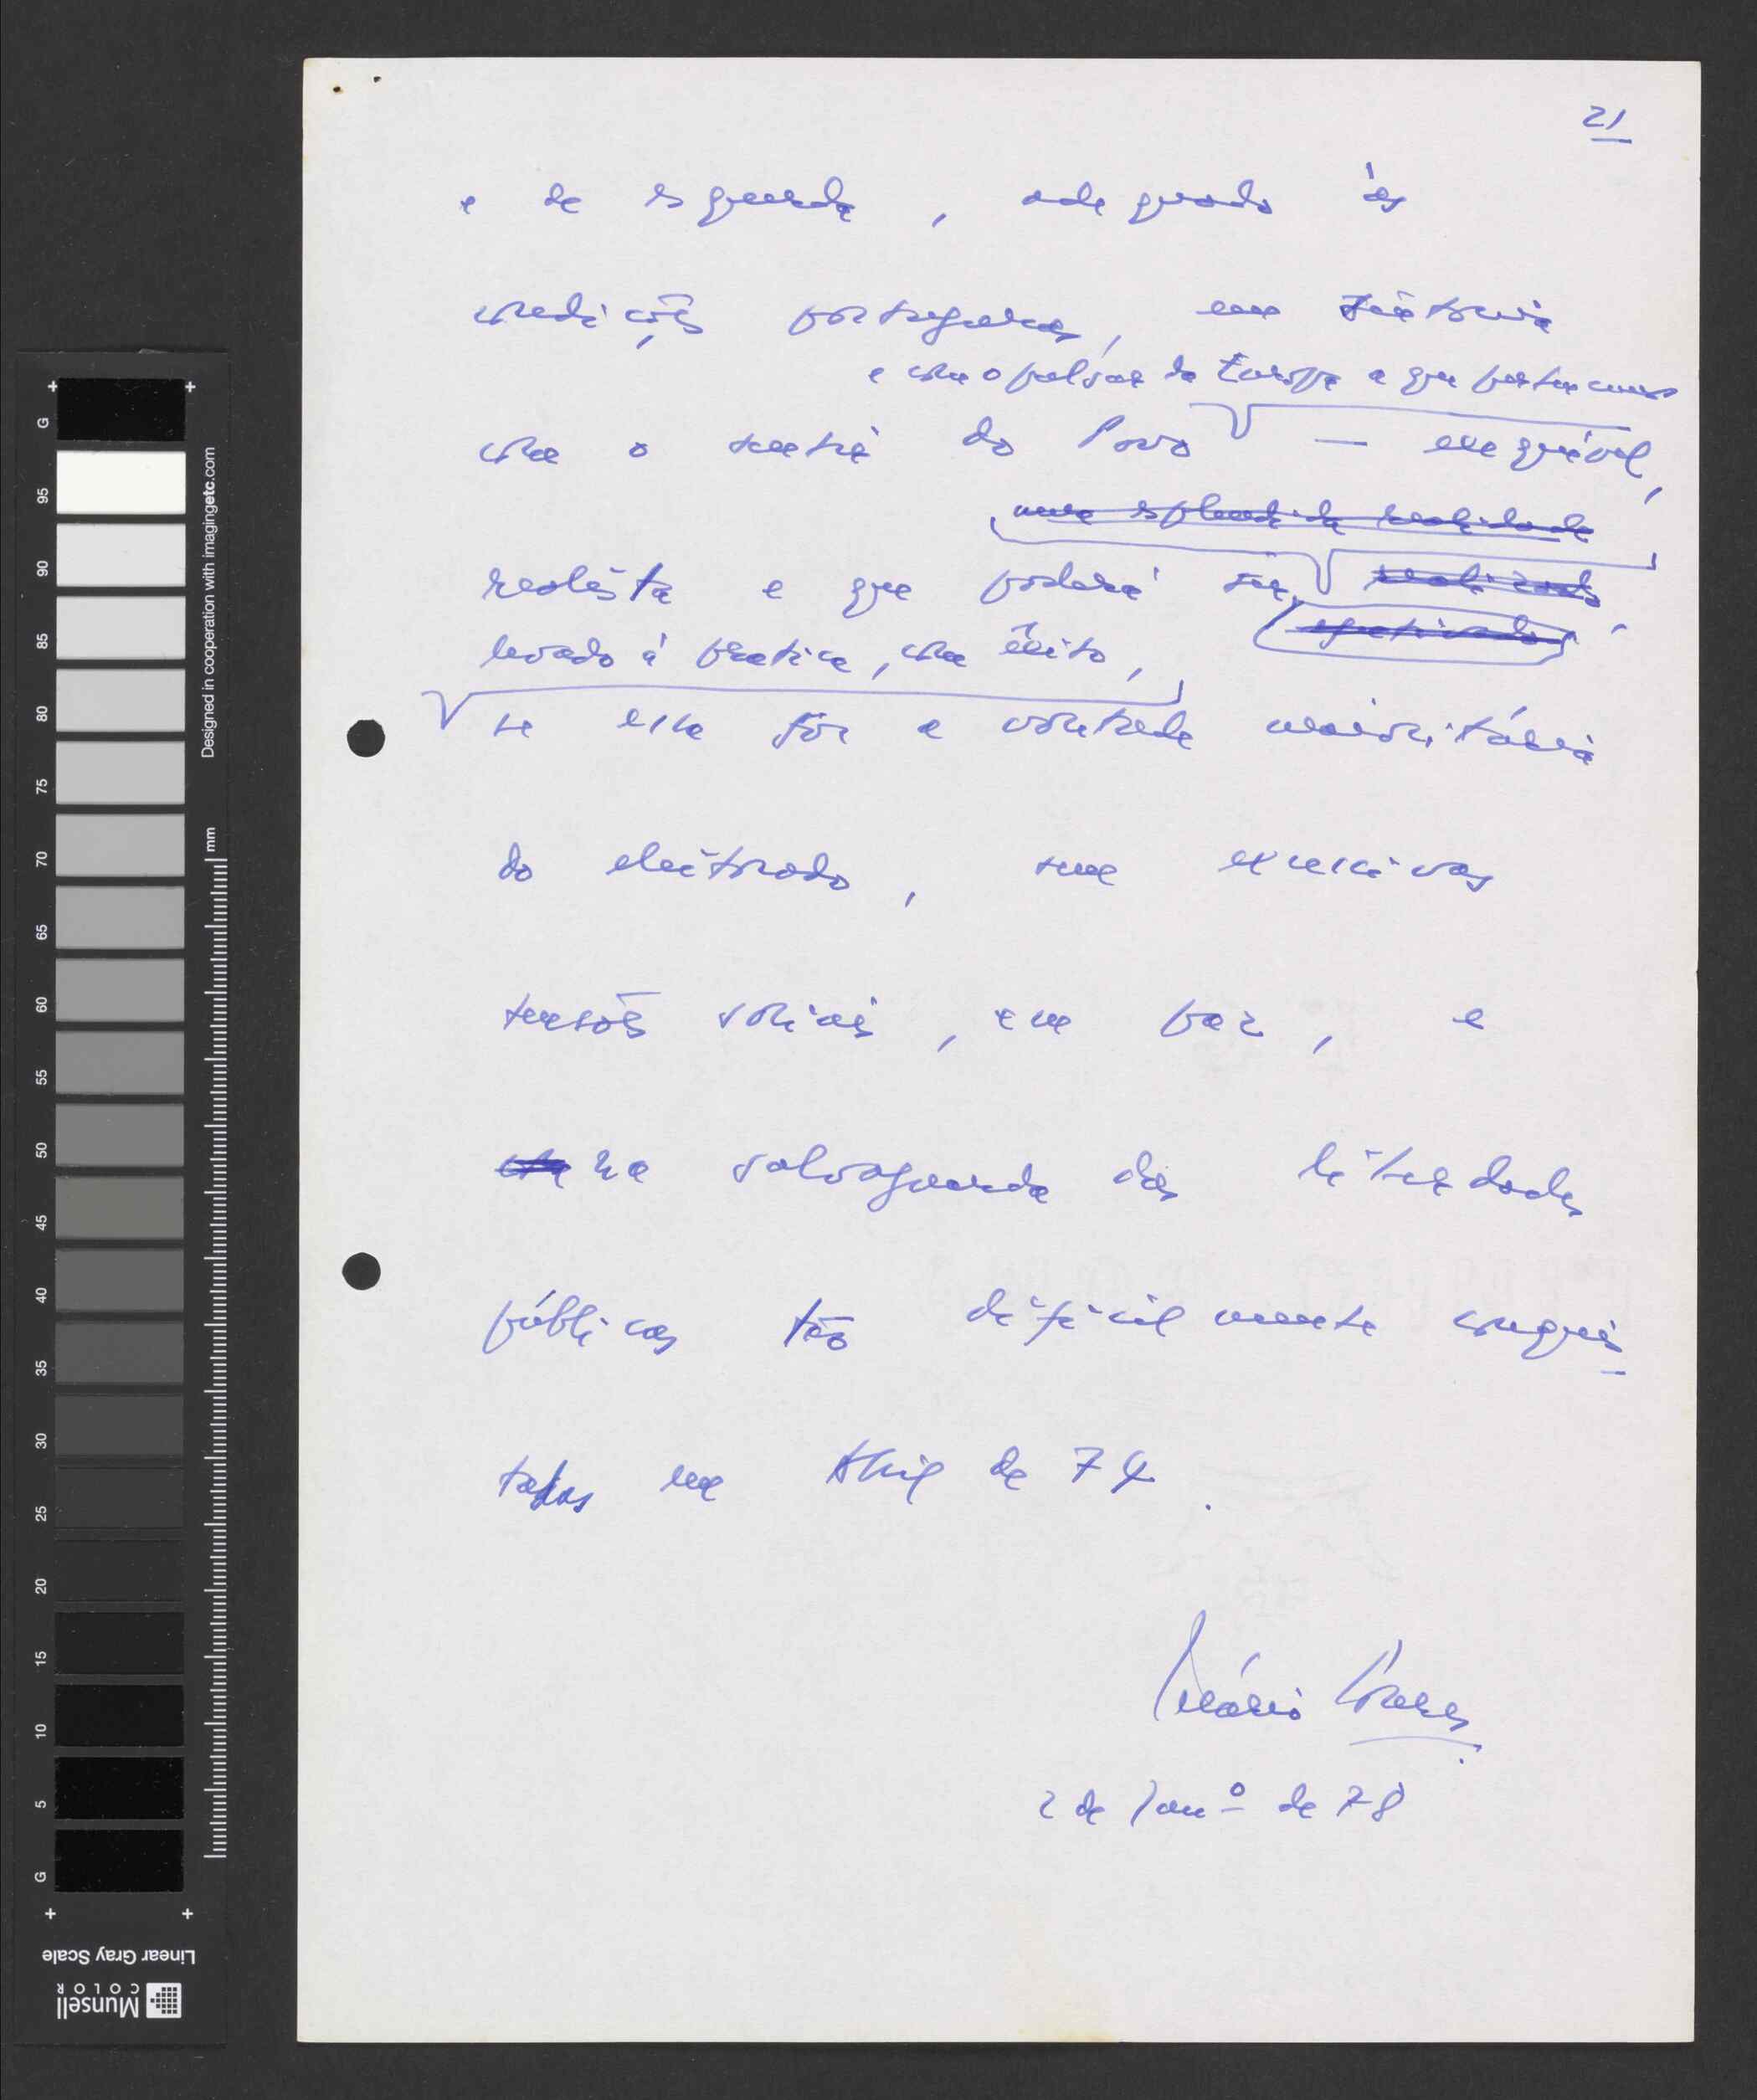 21
e de esquerda, adequado às
condições portuguesas, em sintonia
e com o pulsar da Europa a que pertencemos
com o sentir do Povo — exequível,
uma esplêndida realidade
realista e que poderá ser realizado.
efectivado,
levado à prática, com êxito,
se essa fôr a vontade maioritária
do eleitorado, sem excessivas
tensões sociais, em paz, e
na salvaguarda das liberdades
públicas tão dificilmente conquis-
tadas em Abril de 74.
Mário Soares
2 de Janº de 78
G 95 90 85 80 75 70 65 60 55 50 45 40 35 30 25 20 15 10 5 G
Designed in cooperation with imagingetc.com
mm
Linear Gray Scale
Munsell
COLOR